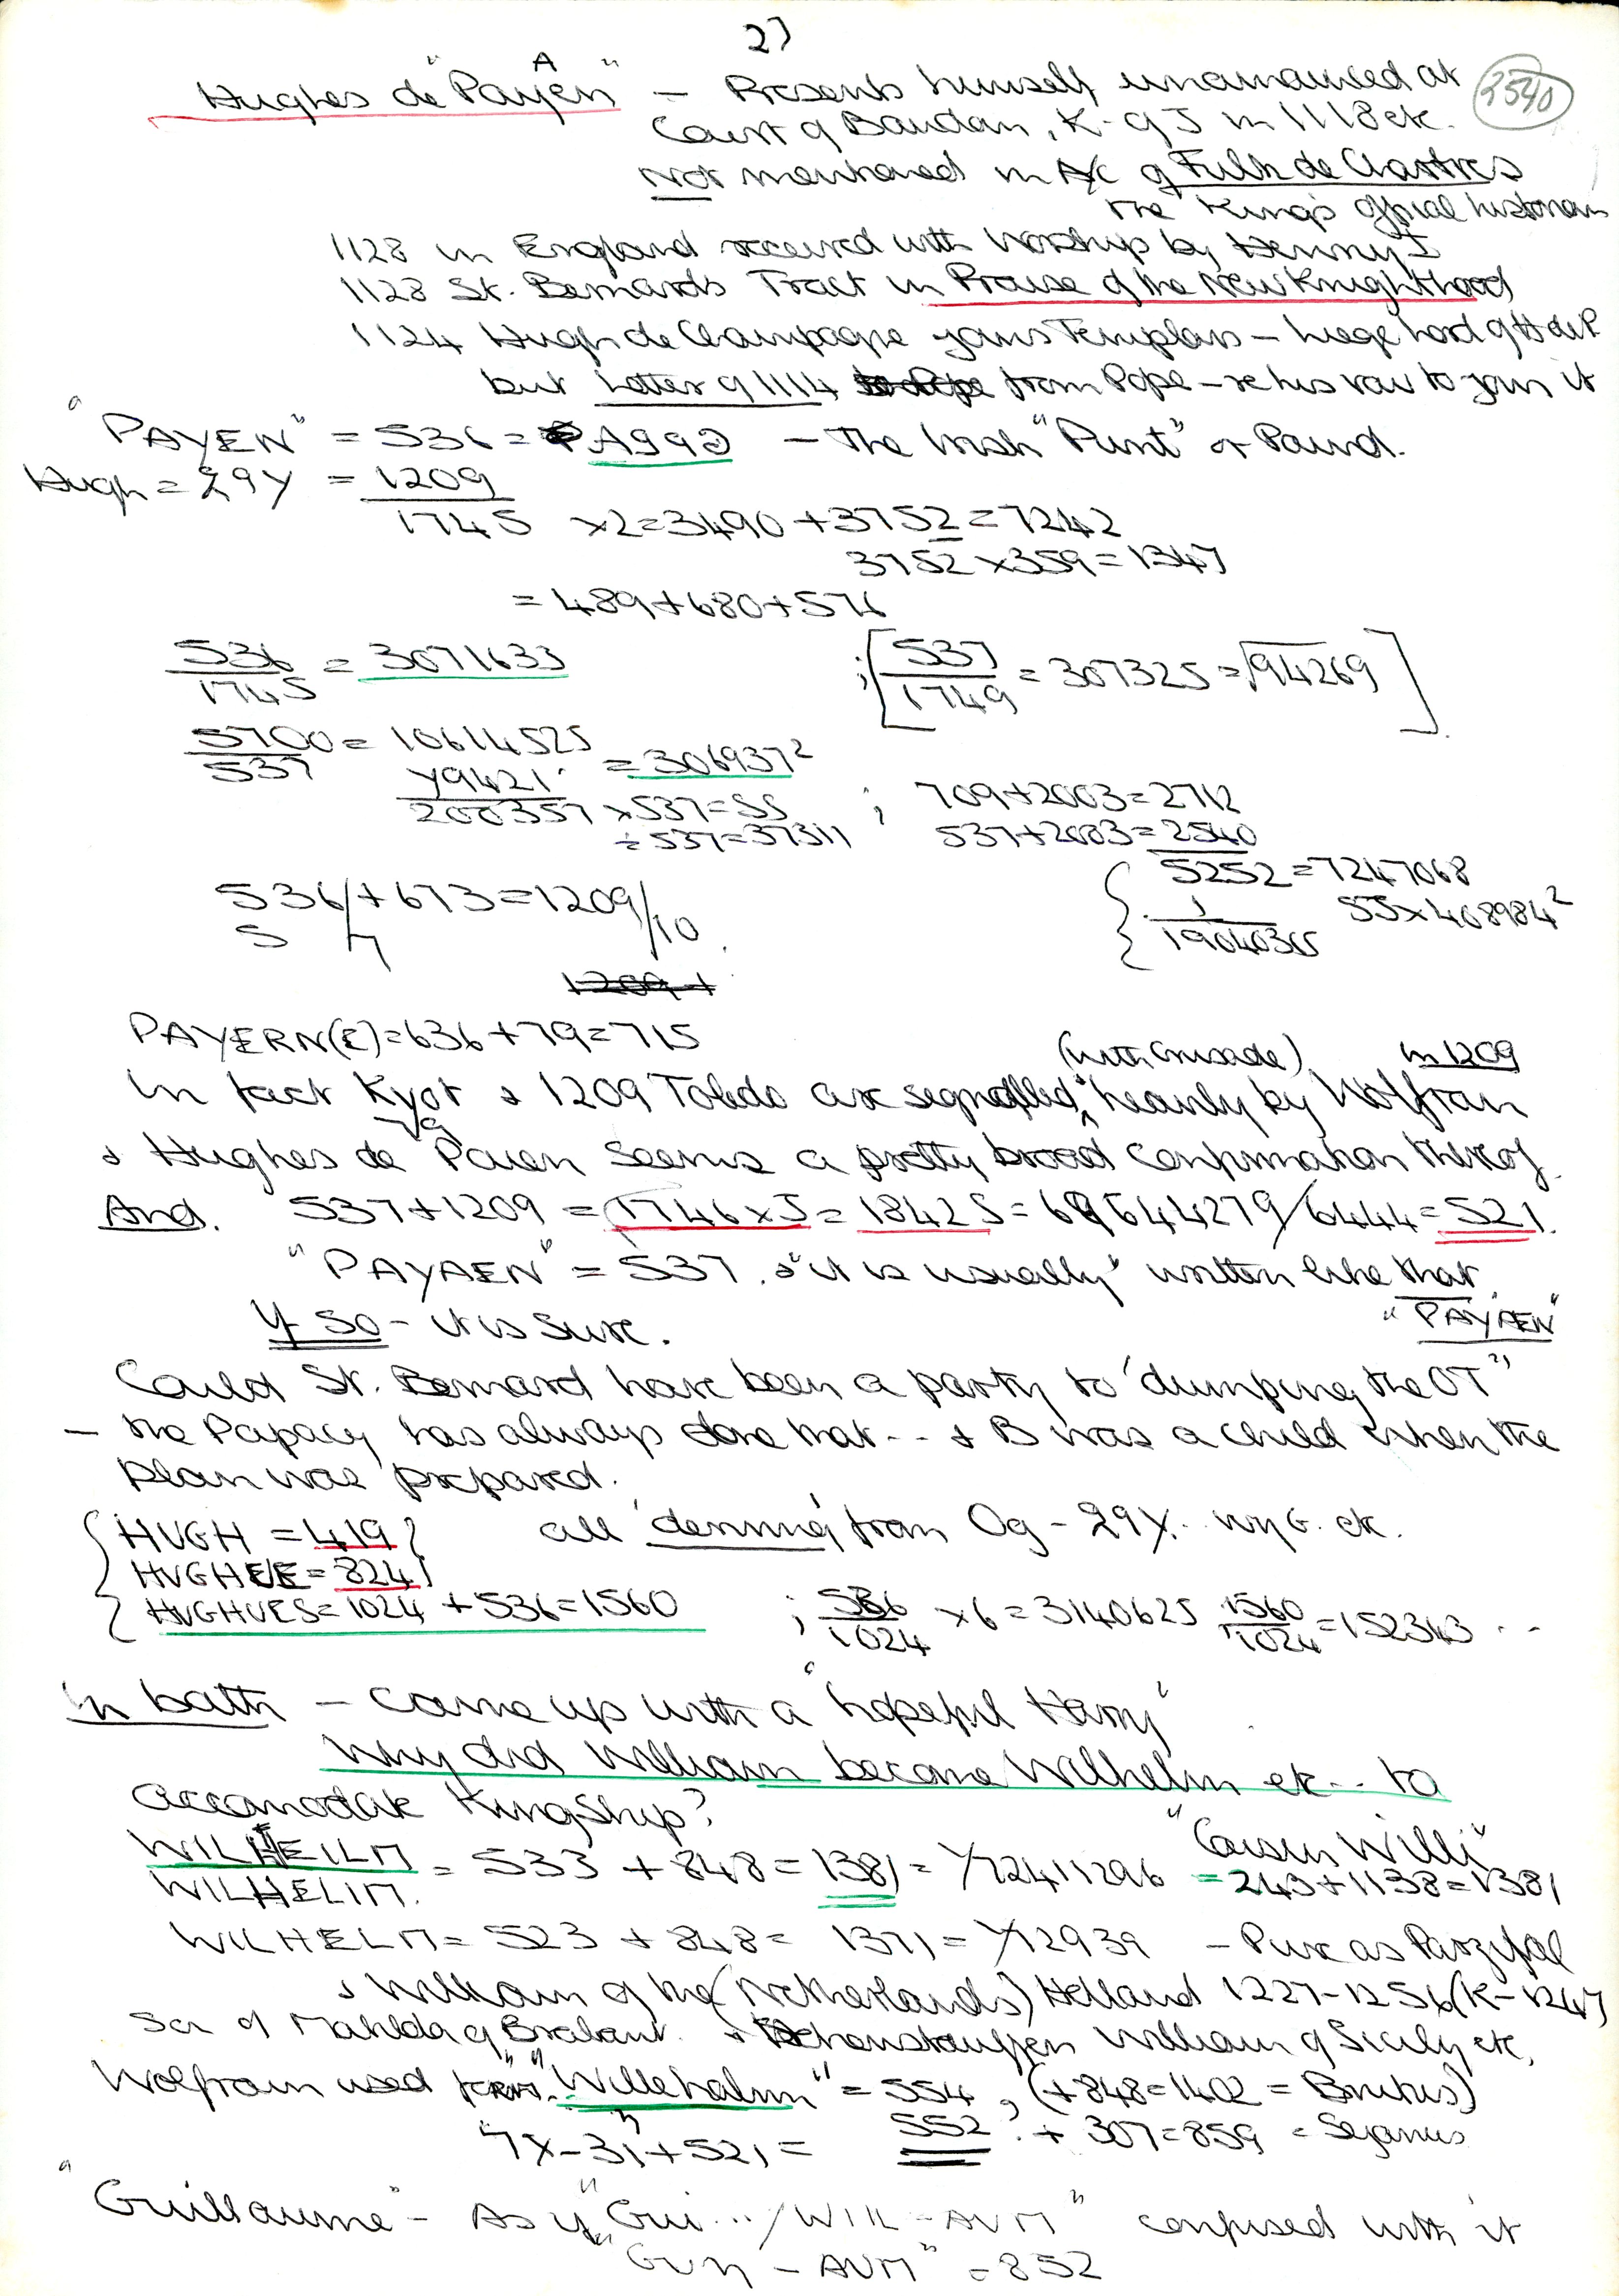 27
2540
Hughes de "Payen" A — Presents himself unannounced at
Court of Baudan, K- of J in 1118 etc.
Not mentioned in A/C of Fulk de Chartres
the King's official historian
1128 in England received with worship by Henry I
1128 St. Bernards Tract in Praise of the New Knighthood
1124 Hugh de Champagne joins Templars — liege lord of H de P
but letter of 1114 from Pope — re his vow to join it
"PAYEN" = 536 = — The Irish "Punt" or Pound.
Hugh = 29Y = 1209
1745 ×2=3490+3752=7242
3752×359=1347
= 489+680+576
536/1745 = 3071633 ; [537/1749 = 307325 = √94269]
5700/537 = 10614525 = 306937²
Y9421
200357 ×537=55 ; 709+2003=2712
÷537=37311 537+2003=2540
5252=7247068
536/+673=1209/10 1/1904036 55×408984²
5 7
PAYERN(E)=636+79=715
In fact Kyot & 1209 Toledo are signalled (with Crusade) heavily by Wolfram in 1209
& Hughes de Payen seems a pretty broad confirmation thereof
And. 537+1209 = 1746×5= 18425= 69644279/6444=521.
"PAYAEN" = 537. & "it is usually" written like that
"PAYAEN"
If so - it is sure.
Could St. Bernard have been a party to "dumping the OT"
— the Papacy has always done that.. & B was a child when the
plan was prepared.
{HVGH = 419} all 'deriving' from Og - 29Y.. etc.
HVGHUE = 824
HVGHUES= 1024 +536=1560 ; 536/1024 ×6=3140625 1560/1024=152343 ..
In bath — Came up with a "hopeful Harry"
Why did William become Wilhelm etc.. to
accomodate Kingship?
WILHEILM = 533 +848=1381= Y72411296 "Cousin Willi"
WILHELIM. = 243+1138=1381
WILHELM= 523 +848= 1371= Y12939 — Pure as Parzifal
& William of the (Netherlands) Holland 1227-1256 (K-1247
Son of Mahilda of Brabant. & Hohenstauffen William of Sicily etc,
Wolfram used "Willehalm" = 554, (+848=1402 = Brutus)
"7X-31+521= 552? + 307=859 = Sejanus
"Guillaume" - As if "Gui.../WIL-AVM" confused with it
-AVM" =852